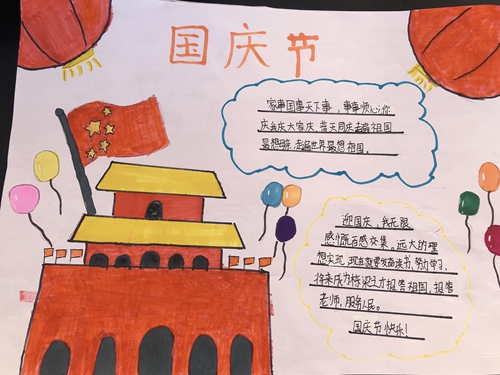 国庆节
家事国事天下事，事事顺心，你
庆我庆大家庆，普天同庆走遍祖国
最想家，走遍世界最想祖国。
迎国庆，我花眼
感慨百感交集。远大的理
想实现，现在就要发奋读书，努力学习，
将来成为栋梁之才报告祖国，报告
老师，服务人民。
国庆节快乐！